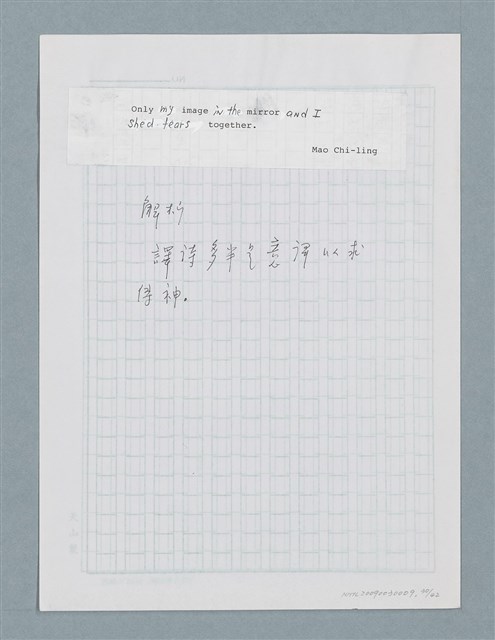 Only my image in the mirror and I
shed tears together.
Mao Chi-ling
解析
譯詩多半是意譯以求
传神.